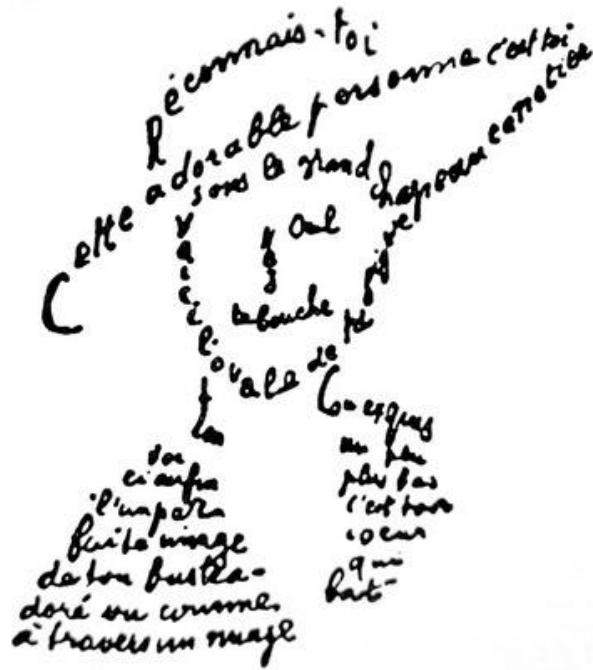 Reconnais-toi
Cette adorable personne c'est toi
sous le grand chapeau canotier
Oeil
nez
la bouche
Voici l'ovale de ta figure
Ton
Cou exquis
voi
ci enfin
l'impar
faite image
de ton buste a-
doré vu comme
à travers un nuage
un peu
plus bas
c'est ton
coeur
qui
bat